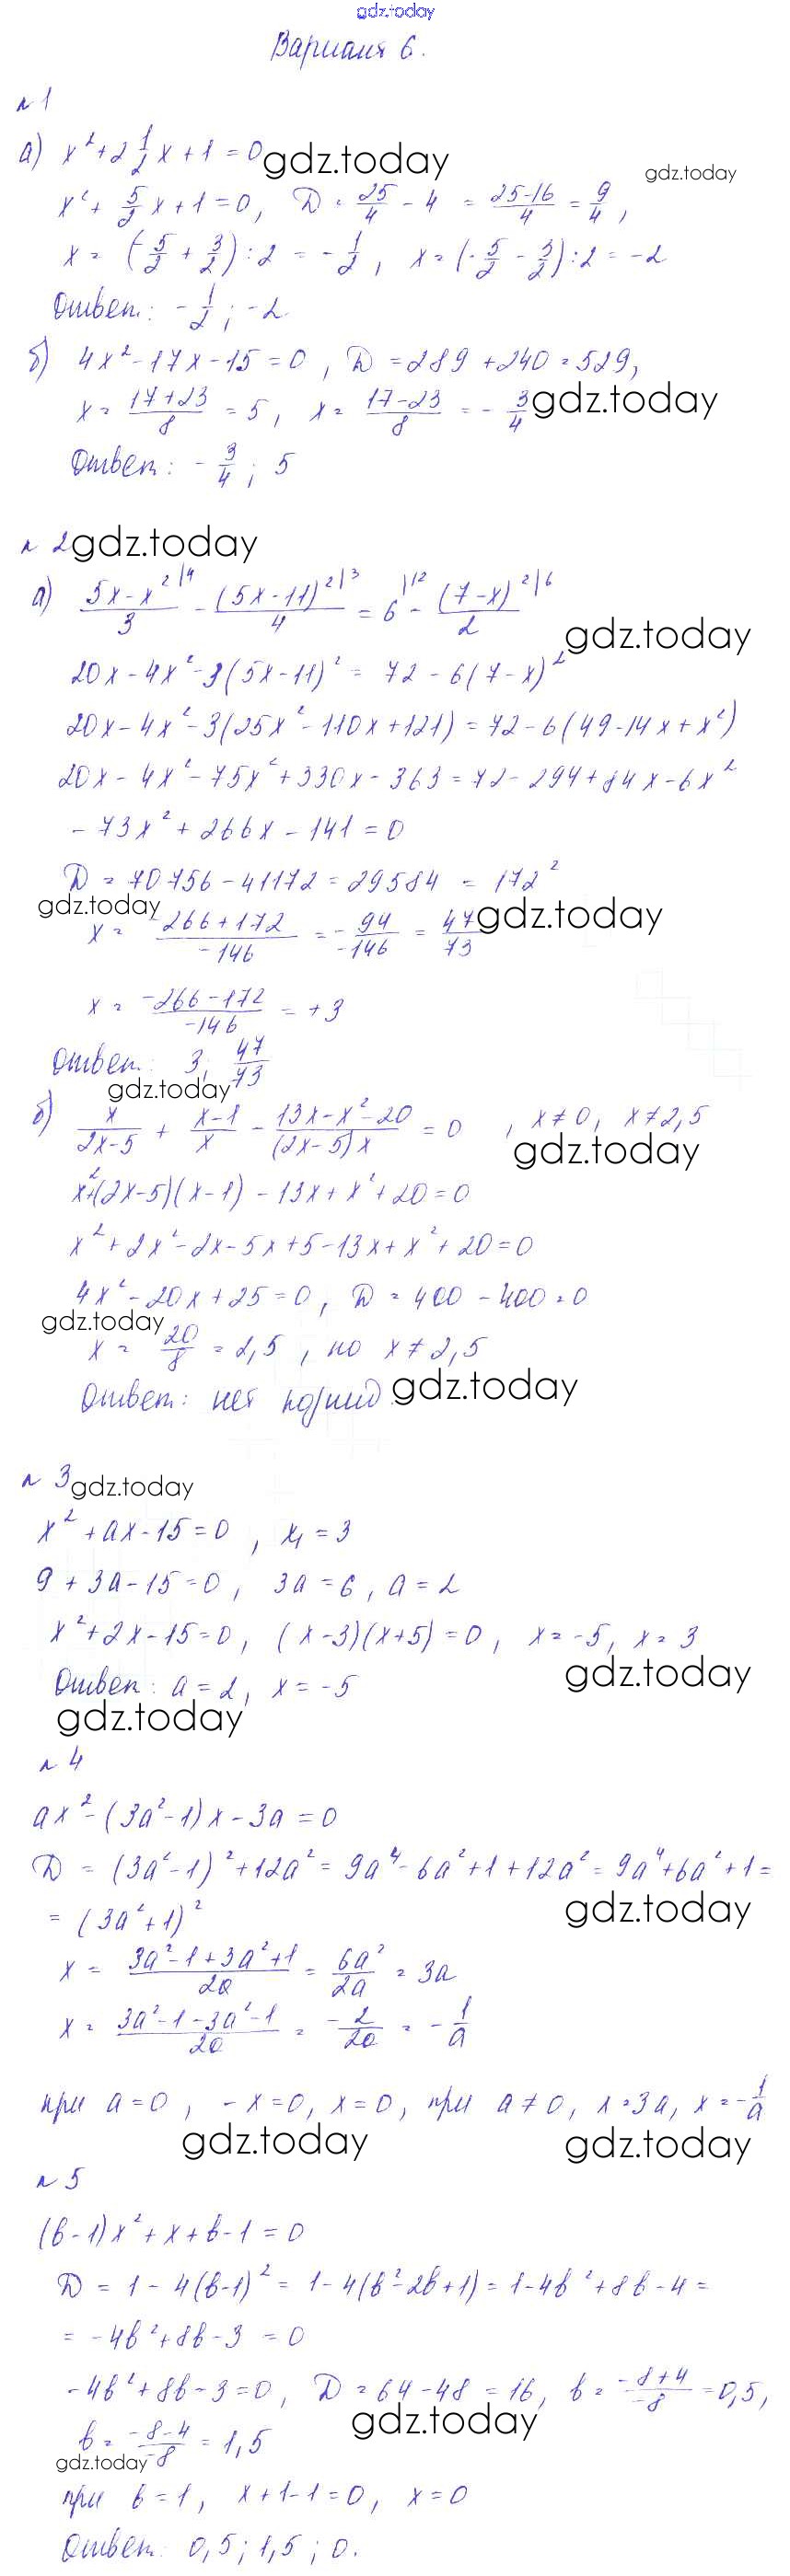 gdz.today
Вариант 6.
№ 1
а) x² + 2 1/2 x + 1 = 0 gdz.today
gdz.today
x² + 5/2 x + 1 = 0, D = 25/4 - 4 = (25-16)/4 = 9/4,
x = (-5/2 + 3/2) : 2 = -1/2, x = (-5/2 - 3/2) : 2 = -2
Ответ: -1/2; -2
б) 4x² - 17x - 15 = 0, D = 289 + 240 = 529,
x = (17+23)/8 = 5, x = (17-23)/8 = -3/4 gdz.today
Ответ: -3/4; 5
№ 2 gdz.today
а) (5x-x²)/3 |4 - (5x-11)²/4 |3 = 6 |12 - (7-x)²/2 |6
gdz.today
20x - 4x² - 3(5x-11)² = 72 - 6(7-x)²
20x - 4x² - 3(25x² - 110x + 121) = 72 - 6(49 - 14x + x²)
20x - 4x² - 75x² + 330x - 363 = 72 - 294 + 84x - 6x²
-73x² + 266x - 141 = 0
D = 70756 - 41172 = 29584 = 172²
gdz.today
x = (-266+172)/-146 = -94/-146 = 47/73 gdz.today
x = (-266-172)/-146 = +3
Ответ: 3; 47/73
gdz.today
б) x/(2x-5) + (x-1)/x - (13x-x²-20)/((2x-5)x) = 0, x≠0, x≠2,5
gdz.today
x²+(2x-5)(x-1) - 13x + x² + 20 = 0
x² + 2x² - 2x - 5x + 5 - 13x + x² + 20 = 0
4x² - 20x + 25 = 0, D = 400 - 400 = 0
gdz.today
x = 20/8 = 2,5, но x ≠ 2,5
Ответ: нет корней gdz.today
№ 3 gdz.today
x² + ax - 15 = 0, x₁ = 3
9 + 3a - 15 = 0, 3a = 6, a = 2
x² + 2x - 15 = 0, (x-3)(x+5) = 0, x = -5, x = 3
Ответ: a = 2, x = -5 gdz.today
gdz.today
№ 4
ax² - (3a²-1)x - 3a = 0
D = (3a²-1)² + 12a² = 9a⁴ - 6a² + 1 + 12a² = 9a⁴ + 6a² + 1 =
= (3a²+1)² gdz.today
x = (3a²-1+3a²+1)/2a = 6a²/2a = 3a
x = (3a²-1-3a²-1)/2a = -2/2a = -1/a
при a = 0, -x = 0, x = 0, при a ≠ 0, x = 3a, x = -1/a
gdz.today gdz.today
№ 5
(b-1)x² + x + b - 1 = 0
D = 1 - 4(b-1)² = 1 - 4(b² - 2b + 1) = 1 - 4b² + 8b - 4 =
= -4b² + 8b - 3 = 0
-4b² + 8b - 3 = 0, D = 64 - 48 = 16, b = (-8+4)/-8 = 0,5,
gdz.today
b = (-8-4)/-8 = 1,5
gdz.today
при b = 1, x + 1 - 1 = 0, x = 0
Ответ: 0,5; 1,5; 0.